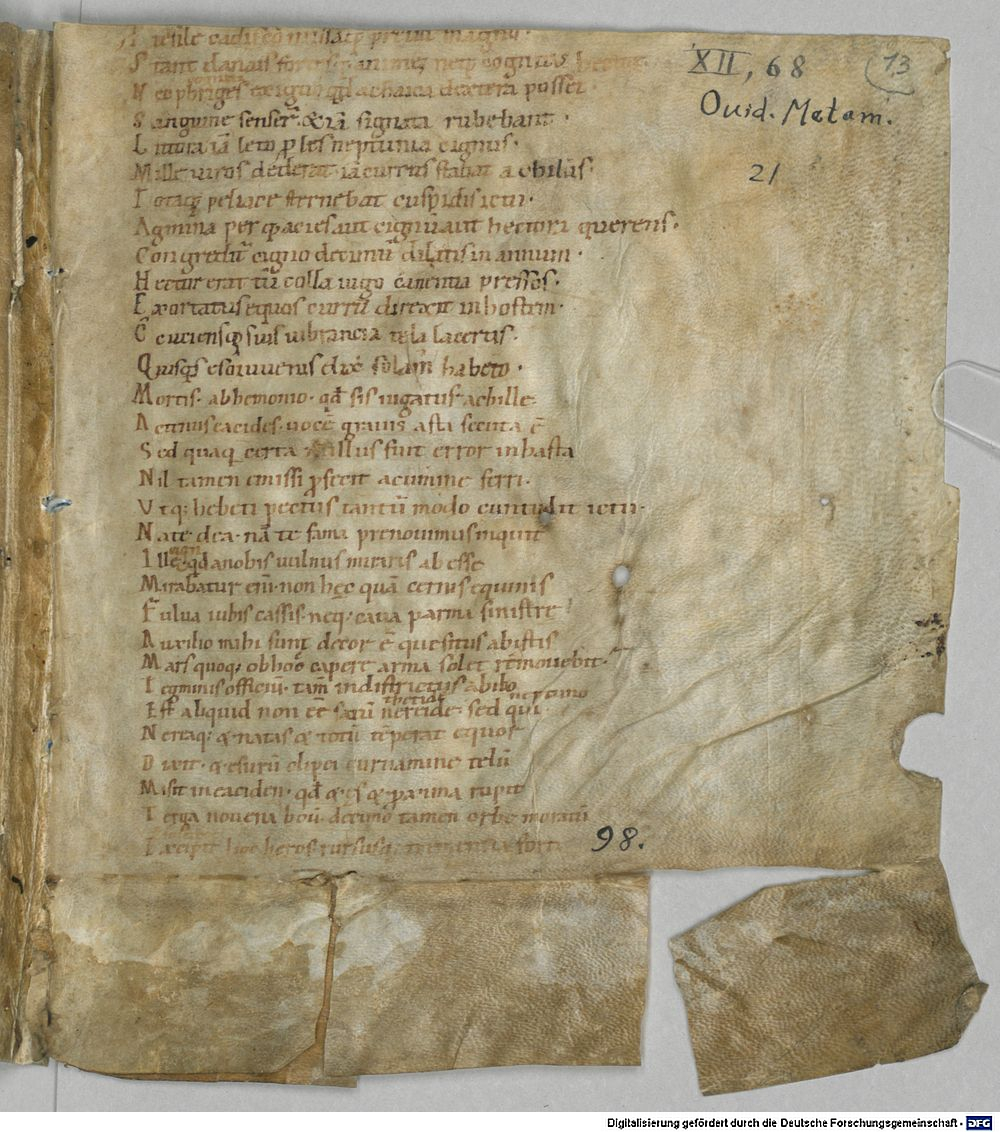 XII, 68
13
Ouid. Metam.
21
magni ·
S tant danais
N eo phriges exiguo qd achaica dextera posset
S anguine senser̄ · & iā sigaea rubebant ·
L itora iā leto p̄les neptunia cignus ·
M ille uiros dederat · iā curru stabat achilles ·
T otaq; peliace sternebat cuspidis ictu ·
A gmina perq; acies aut cignū aut hectora querens ·
C ongreditr̄ cigno decimū dilatus in annum ·
H ector erat tū colla iugo canentia pressos ·
E xortatus equos currū direxit in hostem ·
C cuciensq; suis uibrancia tela lacertis ·
Q uisq̄s es o iuuenis dix̄ solam̄ habeto ·
M ortis · ab hemonio · qd sis iugatus achille
A ctinus eacides · uocē grauis asta secuta ē
S ed quaq̄ certa nullus fuit error in hasta
N il tamen emissi p̄fecit acumine ferri ·
V tq; hebeti pectus tantū modo contudit ictu ·
N ate dea · nā te fama prenouimus inquit
I lle qd a nobis uulnus miraris abesse
M irabatur eni · non hęc quā cernis equinis
F ulua iubis cassis · neq; caua parma sinistre
A uxilio mihi sunt decor ē quesitus ab istis
M ars quoq; ob hoc capere arma solet remouebit ·
T egminis officiū · tam̄ indistrictus abibo
neptuno
E st aliquid non eē satū nereide · sed qui ·
N ereaq; & natas & totū tēperat equor
D ixit · & esurū clipei curuamine telū
M isit in eaciden · qd & es & p̄xima rupit
T erga nouena boū · decimo tamen orbe moratū
E xcipit hoc heros rursusq;
98.
Digitalisierung gefördert durch die Deutsche Forschungsgemeinschaft - DFG